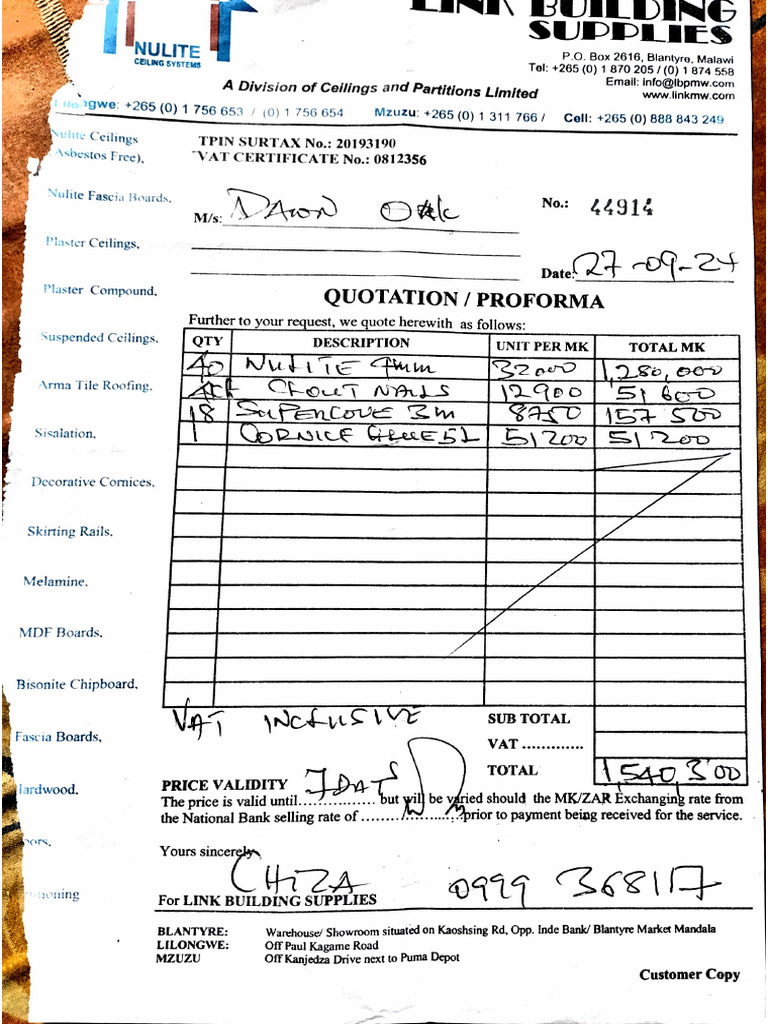 NULITE
CEILING SYSTEMS
LINK BUILDING
SUPPLIES
P.O. Box 2616, Blantyre, Malawi
Tel: +265 (0) 1 870 205 / (0) 1 874 558
Email: info@lbpmw.com
www.linkmw.com
A Division of Ceilings and Partitions Limited
Lilongwe: +265 (0) 1 756 653 / (0) 1 756 654 Mzuzu: +265 (0) 1 311 766 / Cell: +265 (0) 888 843 249
Nulite Ceilings
(Asbestos Free),
Nulite Fascia Boards,
Plaster Ceilings,
Plaster Compound,
Suspended Ceilings,
Arma Tile Roofing,
Sisalation,
Decorative Cornices,
Skirting Rails,
Melamine,
MDF Boards,
Bisonite Chipboard,
Fascia Boards,
Hardwood,
TPIN SURTAX No.: 20193190
VAT CERTIFICATE No.: 0812356
M/s: DAWN OAK
No.: 44914
Date: 27-09-24
QUOTATION / PROFORMA
Further to your request, we quote herewith as follows:
QTY DESCRIPTION UNIT PER MK TOTAL MK
40 NULITE 4mm 32000 1,280,000
CLOUT NAILS 12900 51600
18 SUPERCOVE 3m 8750 157500
1 CORNICE GLUE 5L 51200 51200
VAT INCLUSIVE
SUB TOTAL
VAT .............
TOTAL 1,540,300
PRICE VALIDITY 7 DAYS
The price is valid until................. but will be varied should the MK/ZAR Exchanging rate from
the National Bank selling rate of ....................prior to payment being received for the service.
Yours sincerely
CHIZA 0999 368117
For LINK BUILDING SUPPLIES
BLANTYRE: Warehouse/ Showroom situated on Kaoshsing Rd, Opp. Inde Bank/ Blantyre Market Mandala
LILONGWE: Off Paul Kagame Road
MZUZU Off Kanjedza Drive next to Puma Depot
Customer Copy